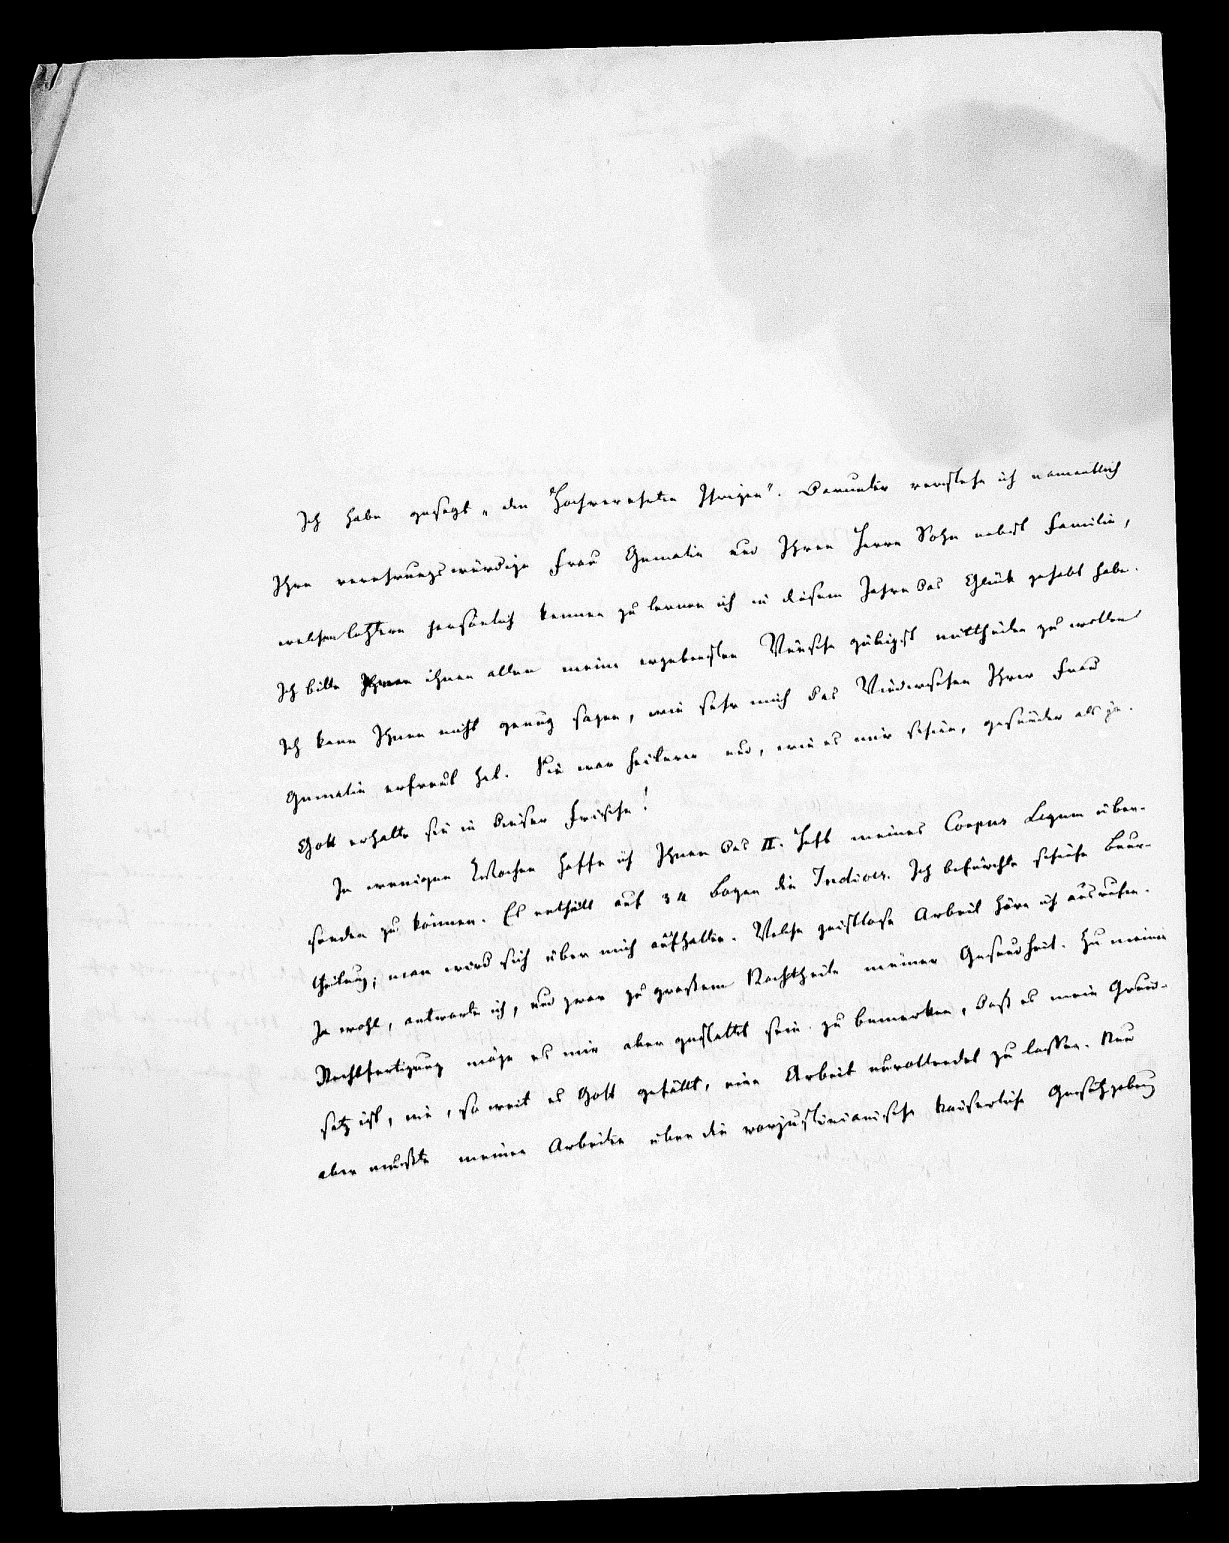 Ich habe gesagt „den Hochverehrten Ihrigen“. Darunter verstehe ich namentlich
Ihre verehrungswürdige Frau Gemalin und Ihren Herrn Sohn nebst Familie,
welchen letztern persönlich kennen zu lernen ich in diesem Jahre das Glück gehabt habe.
Ich bitte ihnen allen meine ergebensten Wünsche gütigst mittheilen zu wollen
Ich kann Ihnen nicht genug sagen, wie sehr mich das Wiedersehen Ihrer Frau
Gemalin erfreut hat. Sie war heiterer und, wie es mir schien, gesünder als je.
Gott erhalte sie in dieser Frische!
In wenigen Wochen hoffe ich Ihnen das II. Heft meines Corpus Legum über-
senden zu können. Es enthält auf 34 Bogen die Indices. Ich befürchte schiefe Beur-
theilung; man wird sich über mich aufhalten. Welche geistlose Arbeit höre ich ausrufen.
Ja wohl, antworte ich, und zwar zu großem Nachtheile meiner Gesundheit. Zu meiner
Rechtfertigung möge es mir aber gestattet sein zu bemerken, daß es mein Grund-
satz ist, nie, so weit es Gott gefällt, eine Arbeit unvollendet zu lassen. Nun
aber mußte meinen Arbeiten über die vorjustinianische kaiserliche Gesetzgebung